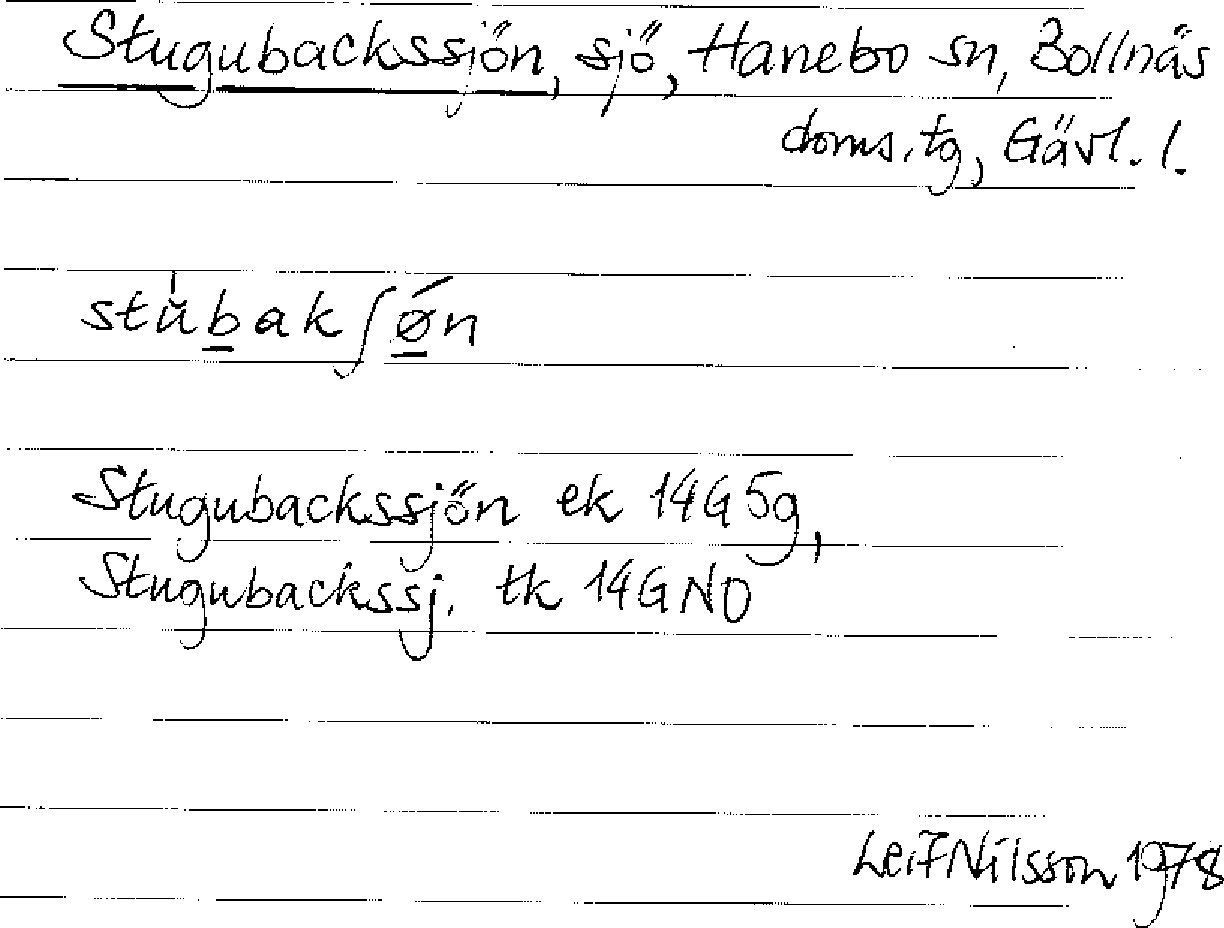 Stugubackssjön, sjö, Hanebo sn, Bollnäs
doms.tg, Gävl. l.
stu̍b̲akʃǿ̲n
Stugubackssjön ek 14G5g,
Stugubackssj. tk 14GNO
Leif Nilsson 1978